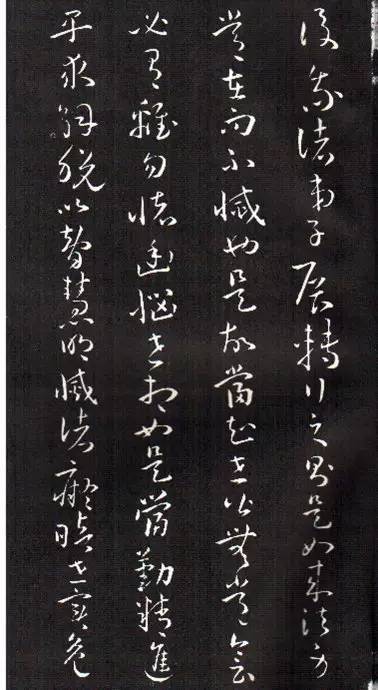 後我諸弟子展轉行之則是如來法身
常在而不滅也是故當知世皆無常會
必有離勿懷憂惱世相如是當勤精進
早求解脫以智慧明滅諸癡世實危